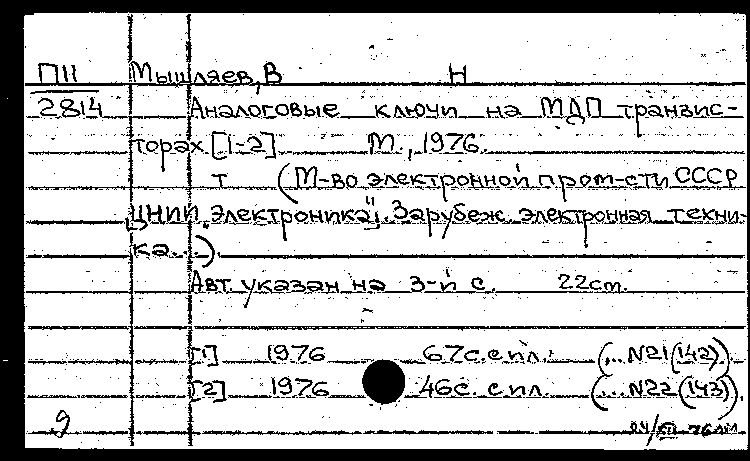 П11 Мышляев, В Н
2814 Аналоговые ключи на МДП транзис-
торах. [1-2] М., 1976.
т (М-во электронной пром-сти СССР
ЦНИИ "Электроника". Зарубеж. электронная техни-
ка...).
Авт. указан на 3-й с. 22 cm.
[1] 1976 67с. с ил. (,.. №21 (142)).
[2] 1976 46с. с ил. (... №22 (143)).
9